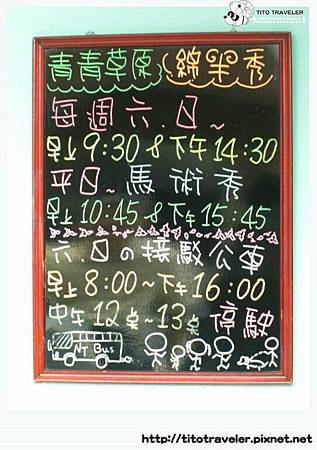 TITO TRAVELER
青青草原 綿羊秀
每週六.日~
早上9:30&下午14:30
平日~馬術秀
早上10:45&下午15:45
六.日の接駁公車
早上8:00~下午16:00
中午12点~13点 停駛
NT Bus
http://titotraveler.pixnet.net